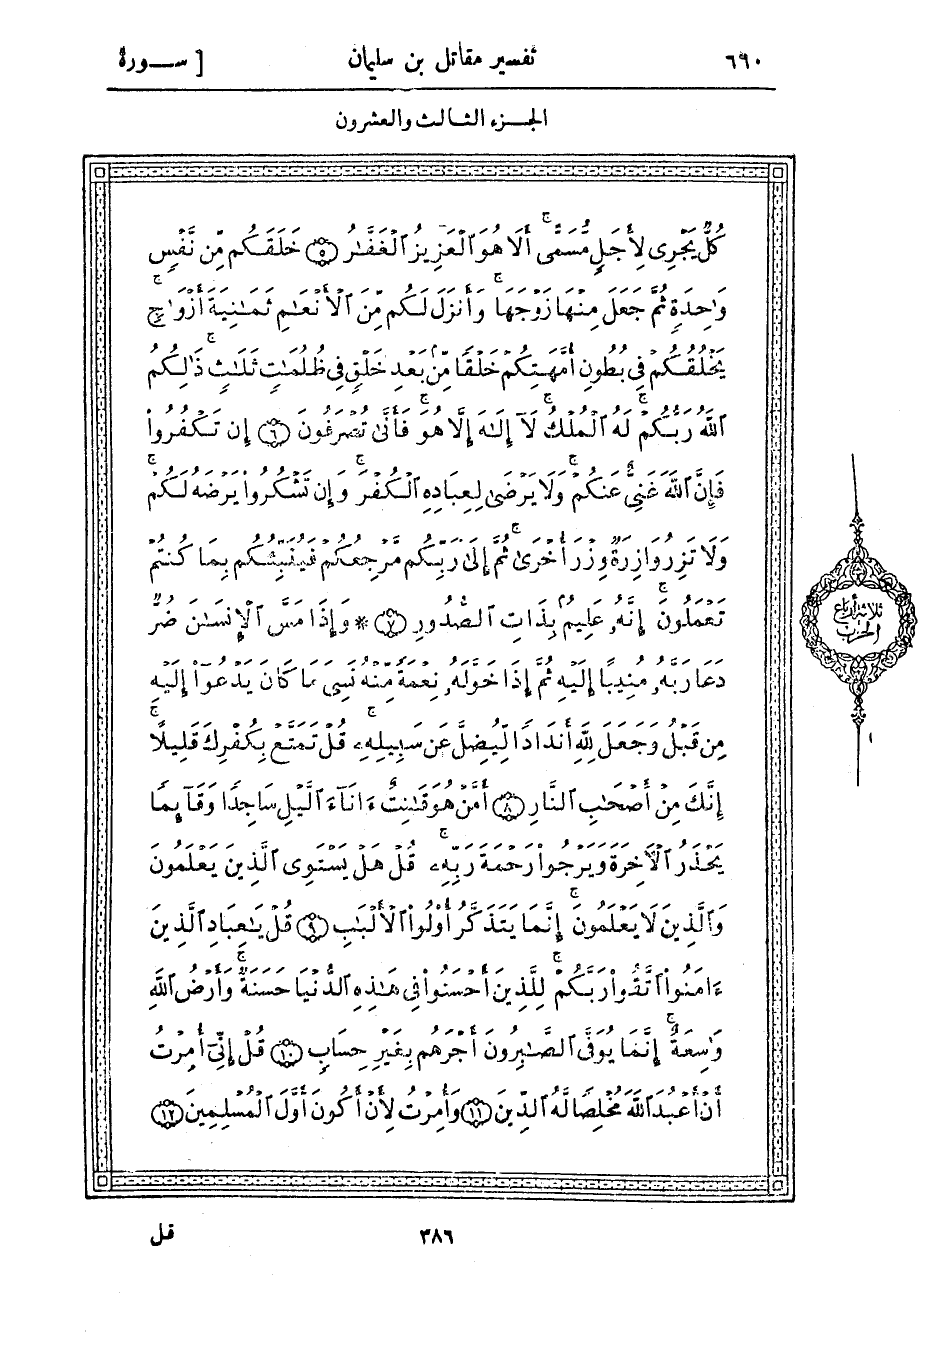 ٦٩٠ تفسير مقاتل بن سليمان [ ســورة
الجـزء الثـالث والعشرون
كُلٌّ يَجْرِى لِأَجَلٍ مُّسَمًّى ۚ أَلَا هُوَ ٱلْعَزِيزُ ٱلْغَفَّـٰرُ ۝٥ خَلَقَكُم مِّن نَّفْسٍ
وَٰحِدَةٍ ثُمَّ جَعَلَ مِنْهَا زَوْجَهَا ۚ وَأَنزَلَ لَكُم مِّنَ ٱلْأَنْعَـٰمِ ثَمَـٰنِيَةَ أَزْوَٰجٍ ۚ
يَخْلُقُكُمْ فِى بُطُونِ أُمَّهَـٰتِكُمْ خَلْقًا مِّنۢ بَعْدِ خَلْقٍ فِى ظُلُمَـٰتٍ ثَلَـٰثٍ ۚ ذَٰلِكُمُ
ٱللَّهُ رَبُّكُمْ ۚ لَهُ ٱلْمُلْكُ ۚ لَآ إِلَـٰهَ إِلَّا هُوَ ۚ فَأَنَّىٰ تُصْرَفُونَ ۝٦ إِن تَكْفُرُوا۟
فَإِنَّ ٱللَّهَ غَنِىٌّ عَنكُمْ ۚ وَلَا يَرْضَىٰ لِعِبَادِهِ ٱلْكُفْرَ ۚ وَإِن تَشْكُرُوا۟ يَرْضَهُ لَكُمْ ۚ
وَلَا تَزِرُ وَازِرَةٌ وِزْرَ أُخْرَىٰ ۚ ثُمَّ إِلَىٰ رَبِّكُم مَّرْجِعُكُمْ فَيُنَبِّئُكُم بِمَا كُنتُمْ
تَعْمَلُونَ ۚ إِنَّهُۥ عَلِيمٌۢ بِذَاتِ ٱلصُّدُورِ ۝٧ * وَإِذَا مَسَّ ٱلْإِنسَـٰنَ ضُرٌّ
دَعَا رَبَّهُۥ مُنِيبًا إِلَيْهِ ثُمَّ إِذَا خَوَّلَهُۥ نِعْمَةً مِّنْهُ نَسِىَ مَا كَانَ يَدْعُوٓا۟ إِلَيْهِ
مِن قَبْلُ وَجَعَلَ لِلَّهِ أَندَادًا لِّيُضِلَّ عَن سَبِيلِهِۦ ۚ قُلْ تَمَتَّعْ بِكُفْرِكَ قَلِيلًا ۚ
إِنَّكَ مِنْ أَصْحَـٰبِ ٱلنَّارِ ۝٨ أَمَّنْ هُوَ قَـٰنِتٌ ءَانَآءَ ٱلَّيْلِ سَاجِدًا وَقَآئِمًا
يَحْذَرُ ٱلْـَٔاخِرَةَ وَيَرْجُوا۟ رَحْمَةَ رَبِّهِۦ ۚ قُلْ هَلْ يَسْتَوِى ٱلَّذِينَ يَعْلَمُونَ
وَٱلَّذِينَ لَا يَعْلَمُونَ ۚ إِنَّمَا يَتَذَكَّرُ أُو۟لُوا۟ ٱلْأَلْبَـٰبِ ۝٩ قُلْ يَـٰعِبَادِ ٱلَّذِينَ
ءَامَنُوا۟ ٱتَّقُوا۟ رَبَّكُمْ ۚ لِلَّذِينَ أَحْسَنُوا۟ فِى هَـٰذِهِ ٱلدُّنْيَا حَسَنَةٌ ۚ وَأَرْضُ ٱللَّهِ
وَٰسِعَةٌ ۚ إِنَّمَا يُوَفَّى ٱلصَّـٰبِرُونَ أَجْرَهُم بِغَيْرِ حِسَابٍ ۝١٠ قُلْ إِنِّىٓ أُمِرْتُ
أَنْ أَعْبُدَ ٱللَّهَ مُخْلِصًا لَّهُ ٱلدِّينَ ۝١١ وَأُمِرْتُ لِأَنْ أَكُونَ أَوَّلَ ٱلْمُسْلِمِينَ ۝١٢
ثلاثة أرباع
الحزب
١
٣٨٦ قل